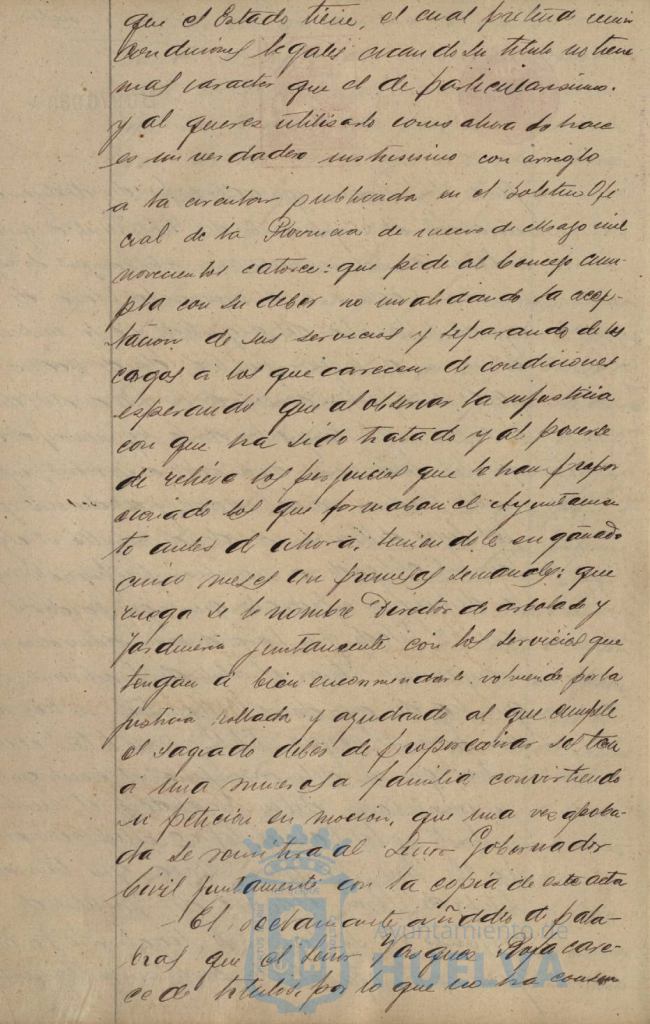 que el Estado tiene, el cual pretende
condiciones legales cuando su titulo no tiene
mas caracter que el de particularisimo.
y al querer utilizarlo como ahora lo hace
es un verdadero con arreglo
a la circular publicada en el Boletin Ofi
cial de la Provincia de nueve de Mayo mil
novecientos catorce: que pide al Concejo cum-
pla con su deber no invalidando la acep-
tacion de sus servicios y separando de los
cargos a los que carecen de condiciones
esperando que al observar la injusticia
con que ha sido tratado y al ponerse
de relieve los perjuicios que le han propor
cionado los que formaban el Ayuntamien
to antes de ahora, teniendole engañado
cinco meses con promesas semanales: que
ruega se le nombre Director de arbolado y
Jardineria juntamente con los servicios que
tengan a bien encomendarle, volviendo por la
justicia hollada y ayudando al que cumple
el sagrado deber de proporcionar
a una numerosa familia convirtiendo
su peticion en mocion, que una vez aproba-
da se remitira al Señor Gobernador
Civil juntamente con la copia de este acta
El declamante añidio de pala-
bras que el Señor Vazquez Roja care-
ce de titulos, por lo que no ha
Ayuntamiento de
HUELVA